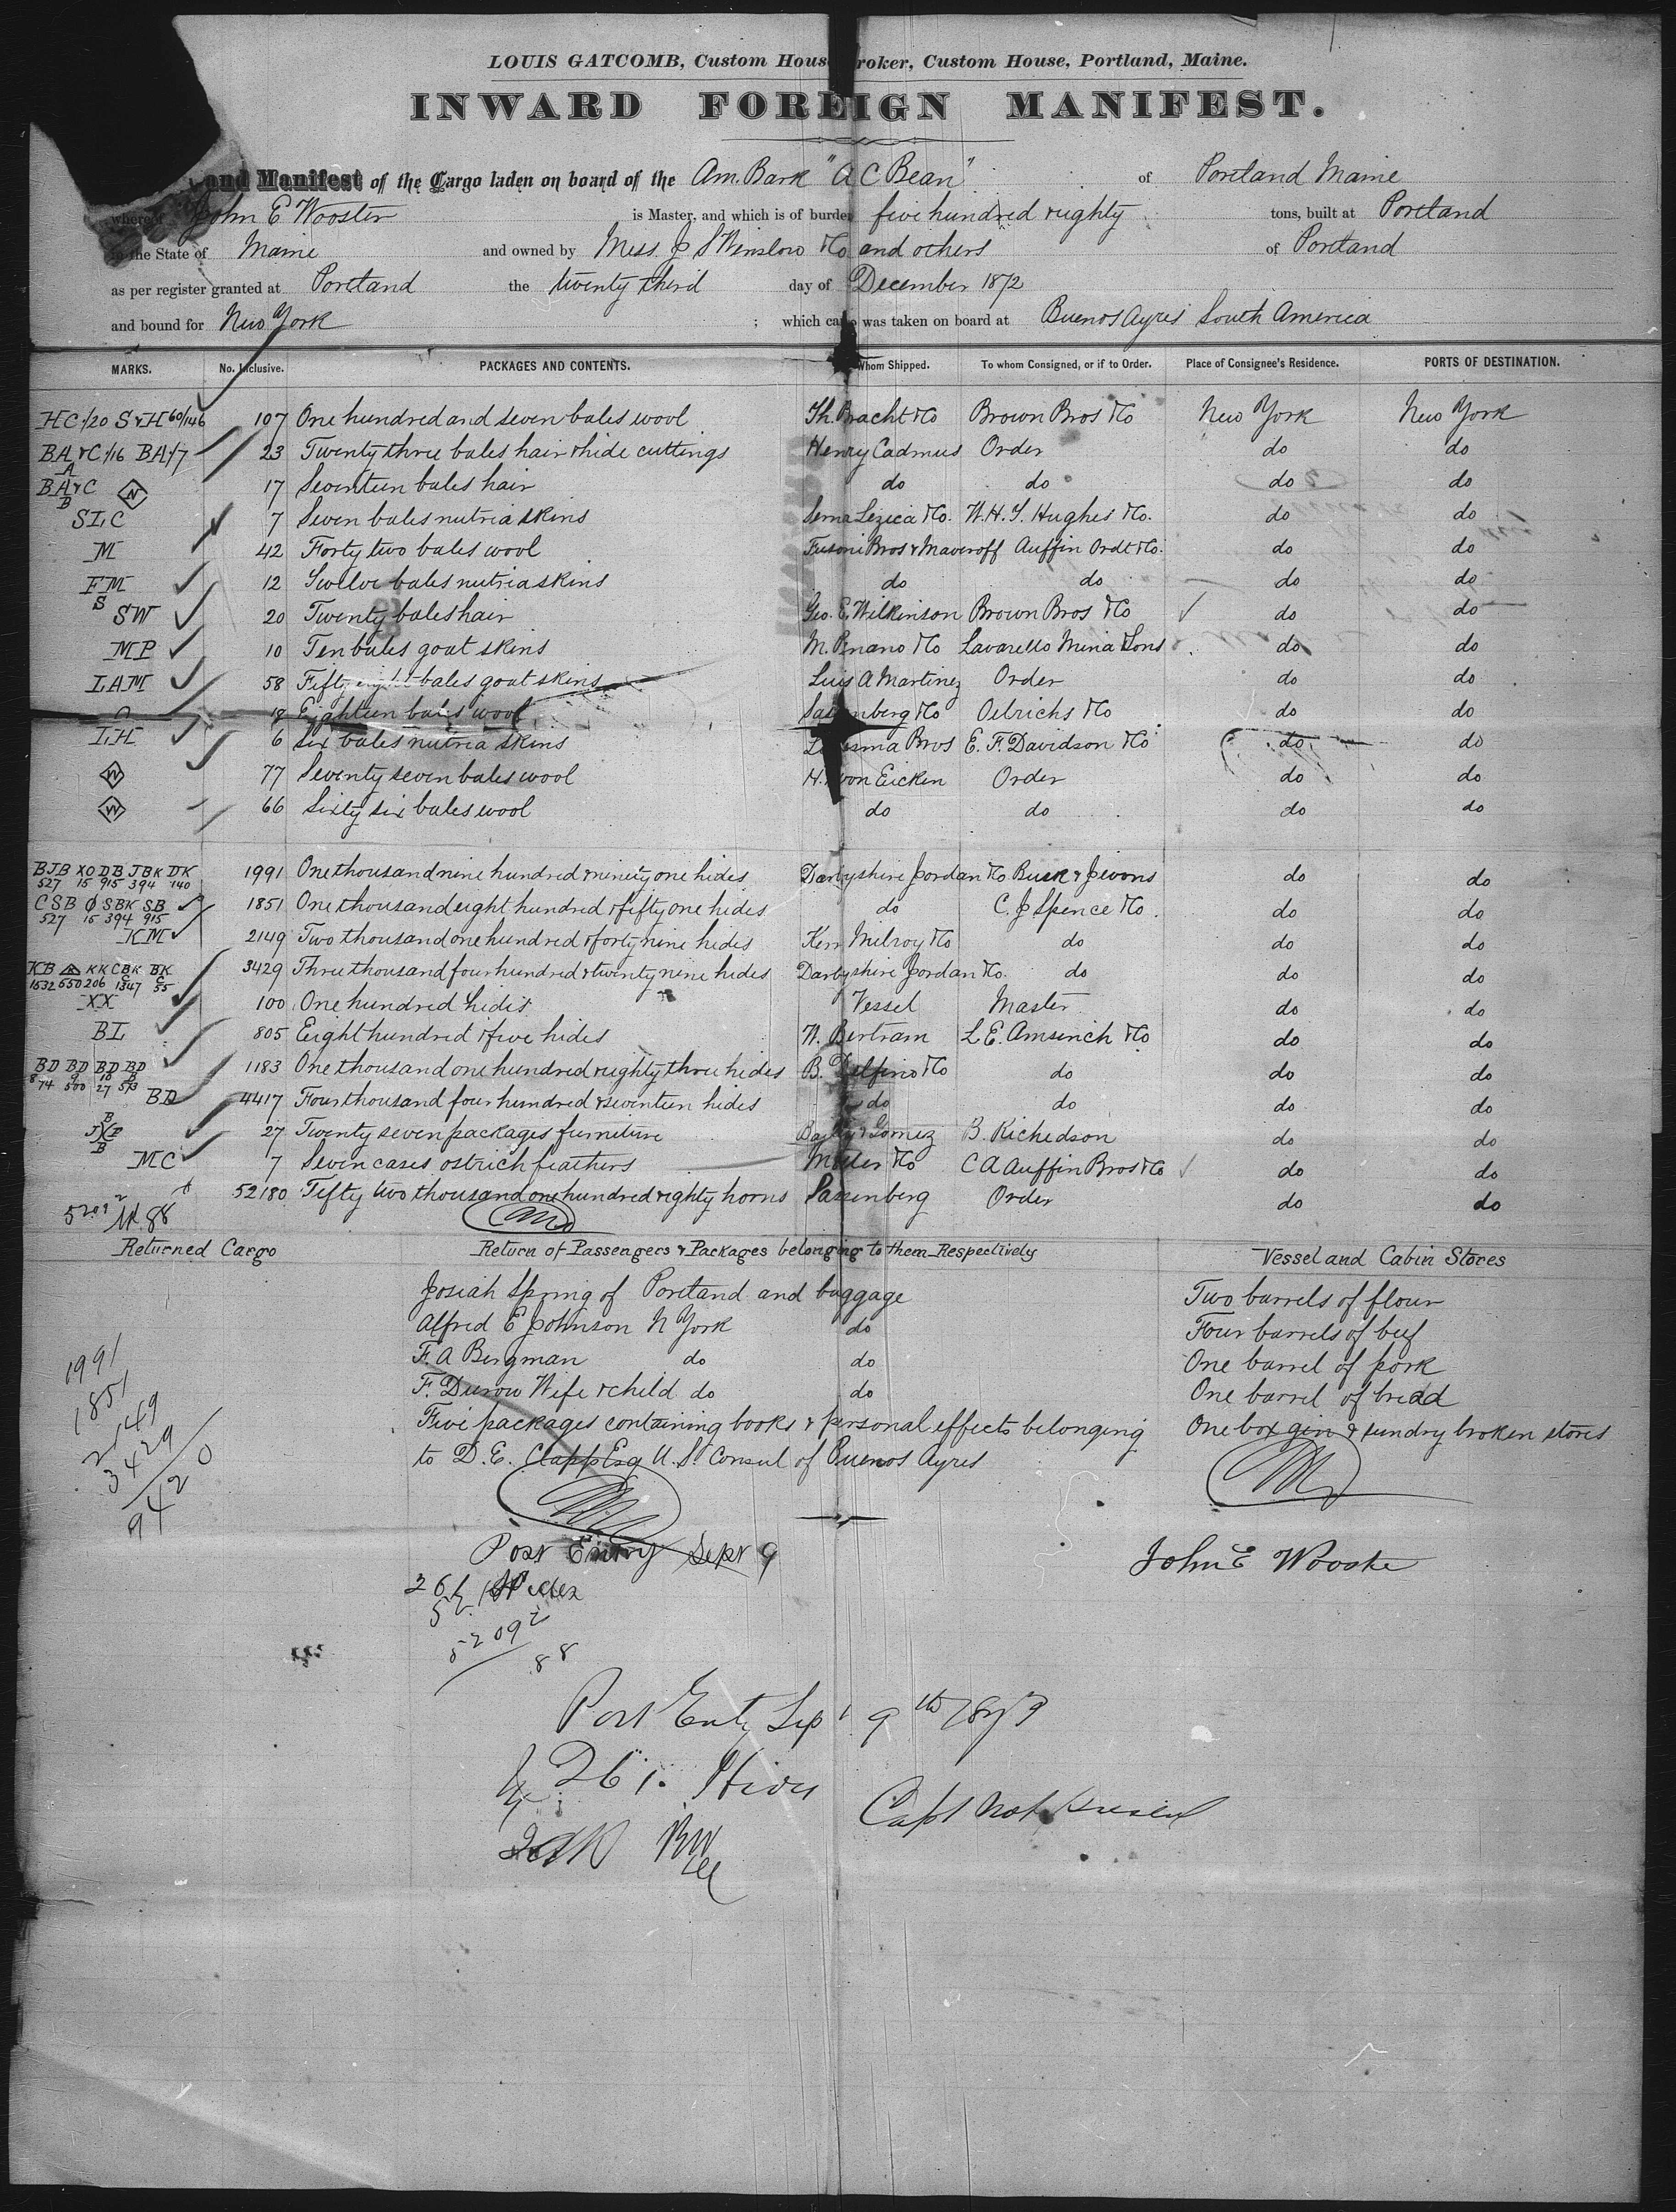 LOUIS GATCOMB, Custom Hous roker, Custom House, Portland, Maine.
INWARD FOREIGN MANIFEST.
and Manifest of the Cargo laden on board of the Am. Bark "A C Bean" of Portland Maine
where of John E Wooster is Master, and which is of burden five hundred & eighty tons, built at Portland
in the State of Maine and owned by Mess. J S Winslow & Co and others of Portland
as per register granted at Portland the twenty third day of December 1872
and bound for New York ; which cargo was taken on board at Buenos Ayres South America
MARKS. No. Inclusive. PACKAGES AND CONTENTS. Whom Shipped. To whom Consigned, or if to Order. Place of Consignee's Residence. PORTS OF DESTINATION.
HC 1/20 S&H 60/146 107 One hundred and seven bales wool Th. Bracht & Co Brown Bros & Co New York New York
BA&C 1/16 BA 1/7 A 23 Twenty three bales hair & hide cuttings Henry Cadmus Order do do
BA&C B N 17 Seventeen bales hair do do do do
SLC 7 Seven bales nutria skins Serna Lezica & Co. W.H.T. Hughes & Co. do do
M 42 Forty two bales wool Fusoni Bros & Maveroff Auffin Ordt & Co. do do
FM S 12 Twelve bales nutria skins do do do do
SW 20 Twenty bales hair Geo. E. Wilkinson Brown Bros & Co do do
MP 10 Ten bales goat skins M. Penano & Co Lavarello Mina & Sons do do
LAM 58 Fifty eight bales goat skins Luis A Martinez Order do do
18 Eighteen bales wool & Co Oelrichs & Co do do
LH 6 Six bales nutria skins Bros E. F. Davidson & Co do do
W 77 Seventy seven bales wool H. von Eicken Order do do
W 66 Sixty six bales wool do do do do
BJB XO DB JBK DK 1991 One thousand nine hundred & ninety one hides Darbyshire Jordan & Co Busk & Jevons do do
527 15 915 394 140
CSB Ø SBK SB 1851 One thousand eight hundred & fifty one hides do C. J Spence & Co. do do
527 15 394 915
KM 2149 Two thousand one hundred & forty nine hides Kerr Milroy & Co do do do
KB KK CBK BK 3429 Three thousand four hundred & twenty nine hides Darbyshire Jordan & Co. do do do
1532 550 206 1347 55
XX 100 One hundred hides Vessel Master do do
BL 805 Eight hundred & five hides W. Bertram L. E. Amsinch & Co do do
BD BD BD BD 1183 One thousand one hundred & eighty three hides B. Delfino & Co do do do
8 9 10
74 27 513
BD 4417 Four thousand four hundred & seventeen hides do do do do
27 Twenty seven packages furniture & Gomez B. Richedson do do
MC 7 Seven cases ostrich feathers & Co C A Auffin Bros & Co do do
52180 Fifty two thousand one hundred & eighty horns Order do do
88
Returned Cargo Return of Passengers & Packages belonging to them Respectively Vessel and Cabin Stores
Josiah Spring of Portland and baggage Two barrels of flour
Alfred E Johnson N York do Four barrels of beef
F. A Bergman do do One barrel of pork
F. Durow Wife & child do do One barrel of bread
Five packages containing books & personal effects belonging One box gin & sundry broken stores
to D. E. Clapp Esq U. S. Consul of Buenos Ayres
1991
1851
2149
3429
9420
Post Entry Sept 9
John E Wooster
261 Hides
52092
88
Post Entry Sep 9th 1873
261 Hides
Capt not